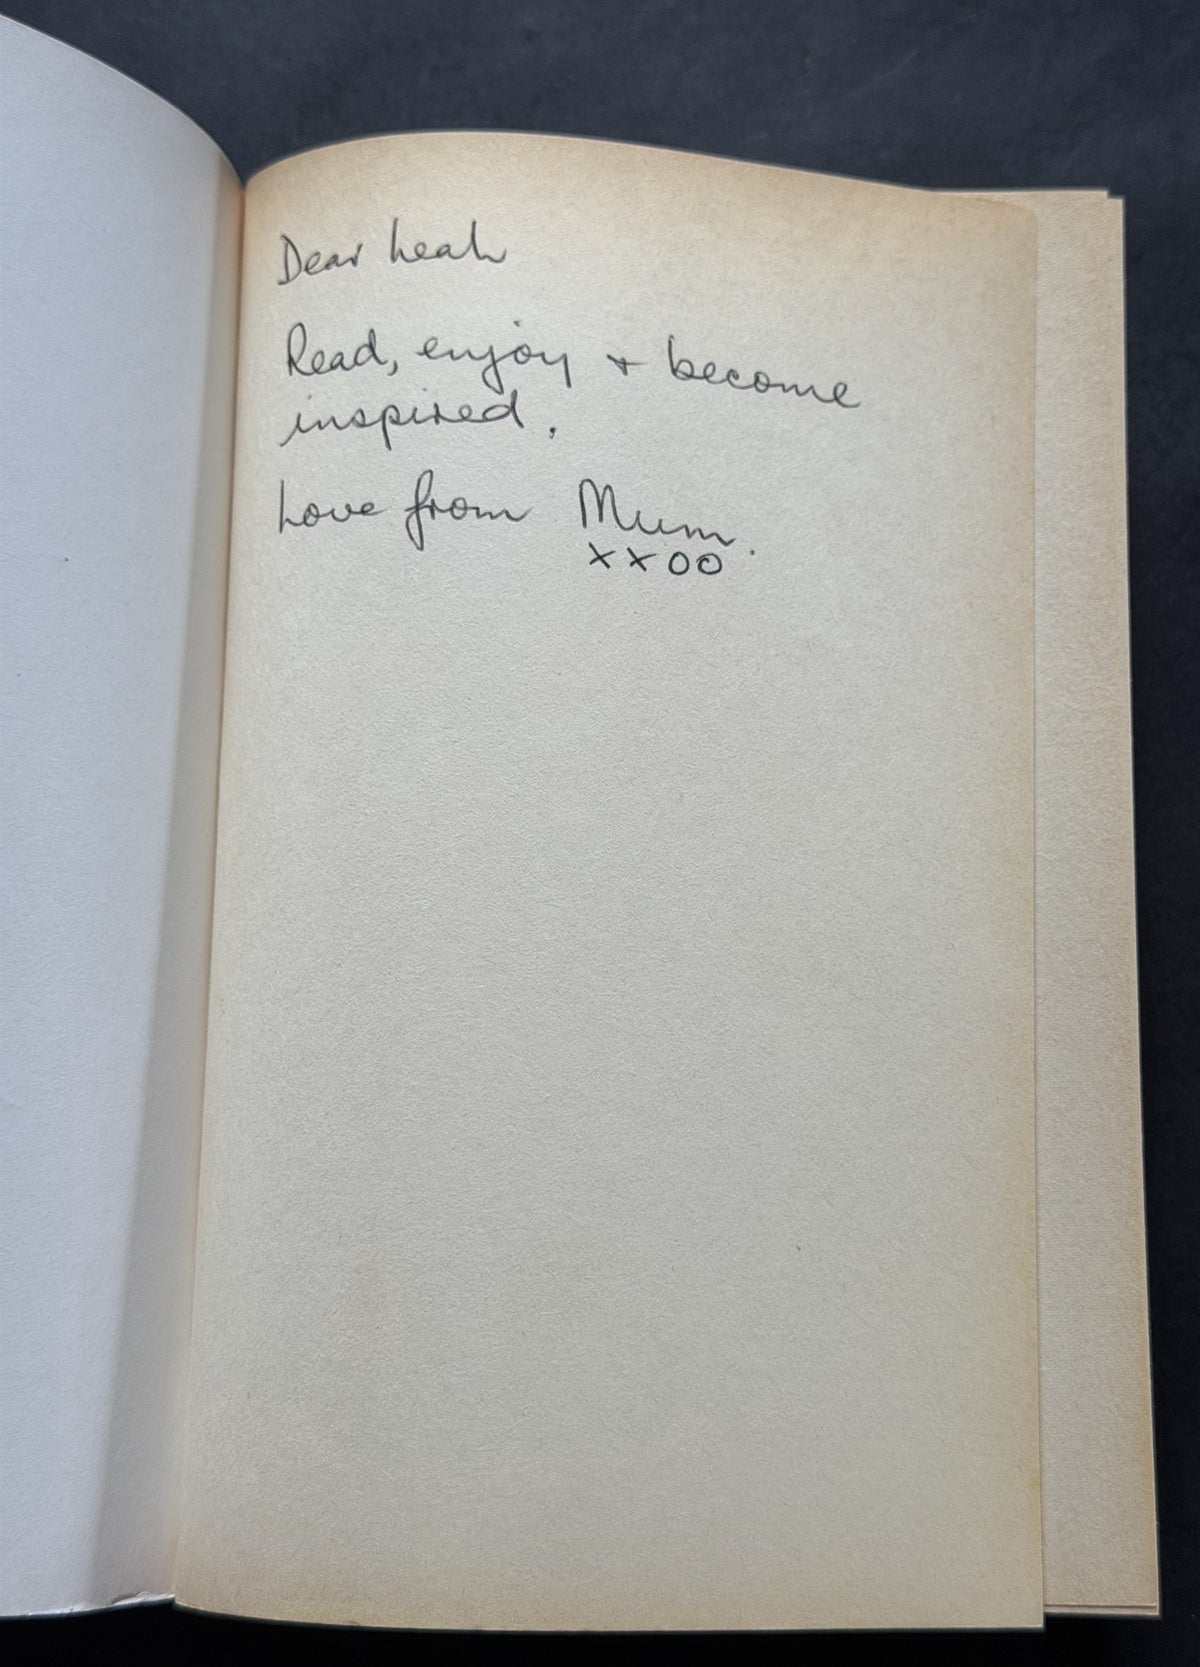 Dear Leah
Read, enjoy + become
inspired.
Love from Mum.
xxoo